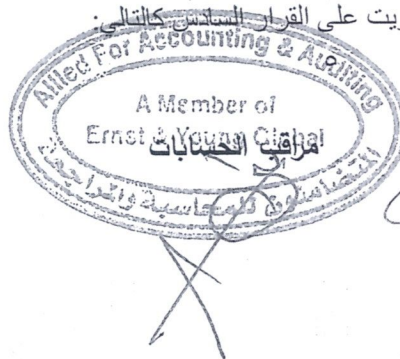 يت على القرار السادس كالتالي:
Allied For Accounting & Auditing
A Member of
Ernst & Young Global
مراقب الحسابات
المتضامنون للمحاسبة والمراجعة